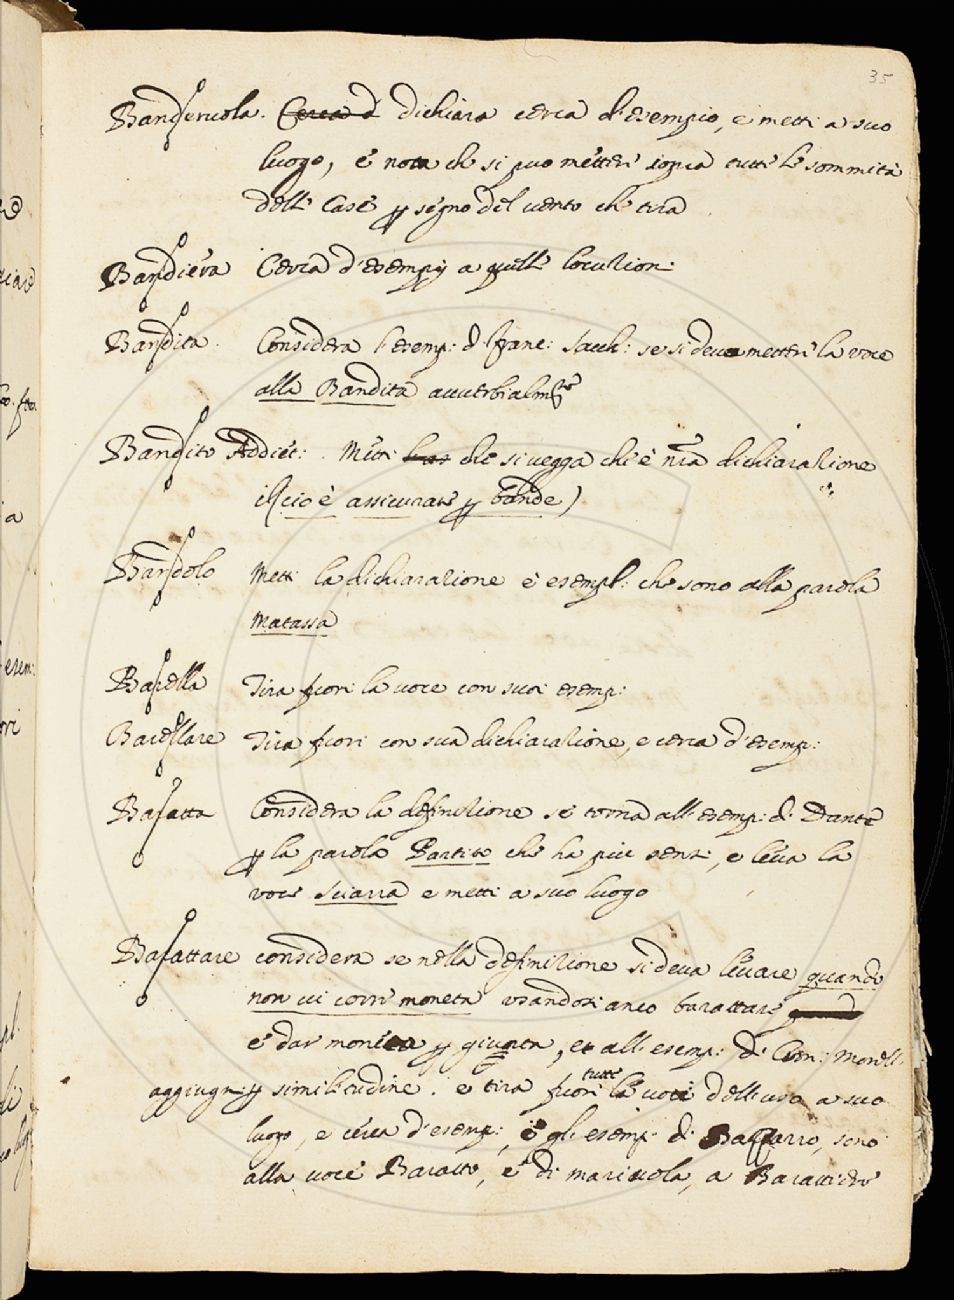 35
Banderuola. Cerca d dichiara cerca d'esempio, e metti a suo
luogo, e nota che si può metter sopra tutte le sommità
delle Case p segno del vento che tira
Bandiera Cerca d'esempij a quelle locuzioni
Bandita. Considera l'esemp: di Franc: Sacch: se si deva metter la voce
alla Bandita avverbialmte
Bandito Addiet: Metti che si vegga che è nra dichiarazione
il (cioè assicurate p bande)
Bandolo Metti la dichiarazione e esempl: che sono alla parola
Matassa
Barella Tira fuori la voce con suoi esemp:
Barellare Tira fuori con sua dichiarazione, e cerca d'esemp:
Baratta Considera la definizione se torna all'esemp: di Dante
p la parola Partito che ha più sensi, e leva la
voce Sciarra e metti a suo luogo
Barattare considera se nella definizione si deva levare quando
non vi corre moneta usandosi anco barattare
e dar moneta p giunta, et all'esemp: di Cron: Morell:
aggiugni p similitudine. e tira fuori tutte le voci dell'uso a suo
luogo, e cerca d'esemp:, e gl'esemp: di sono
alla voce Baratto, e di mariuola, a Barattiere